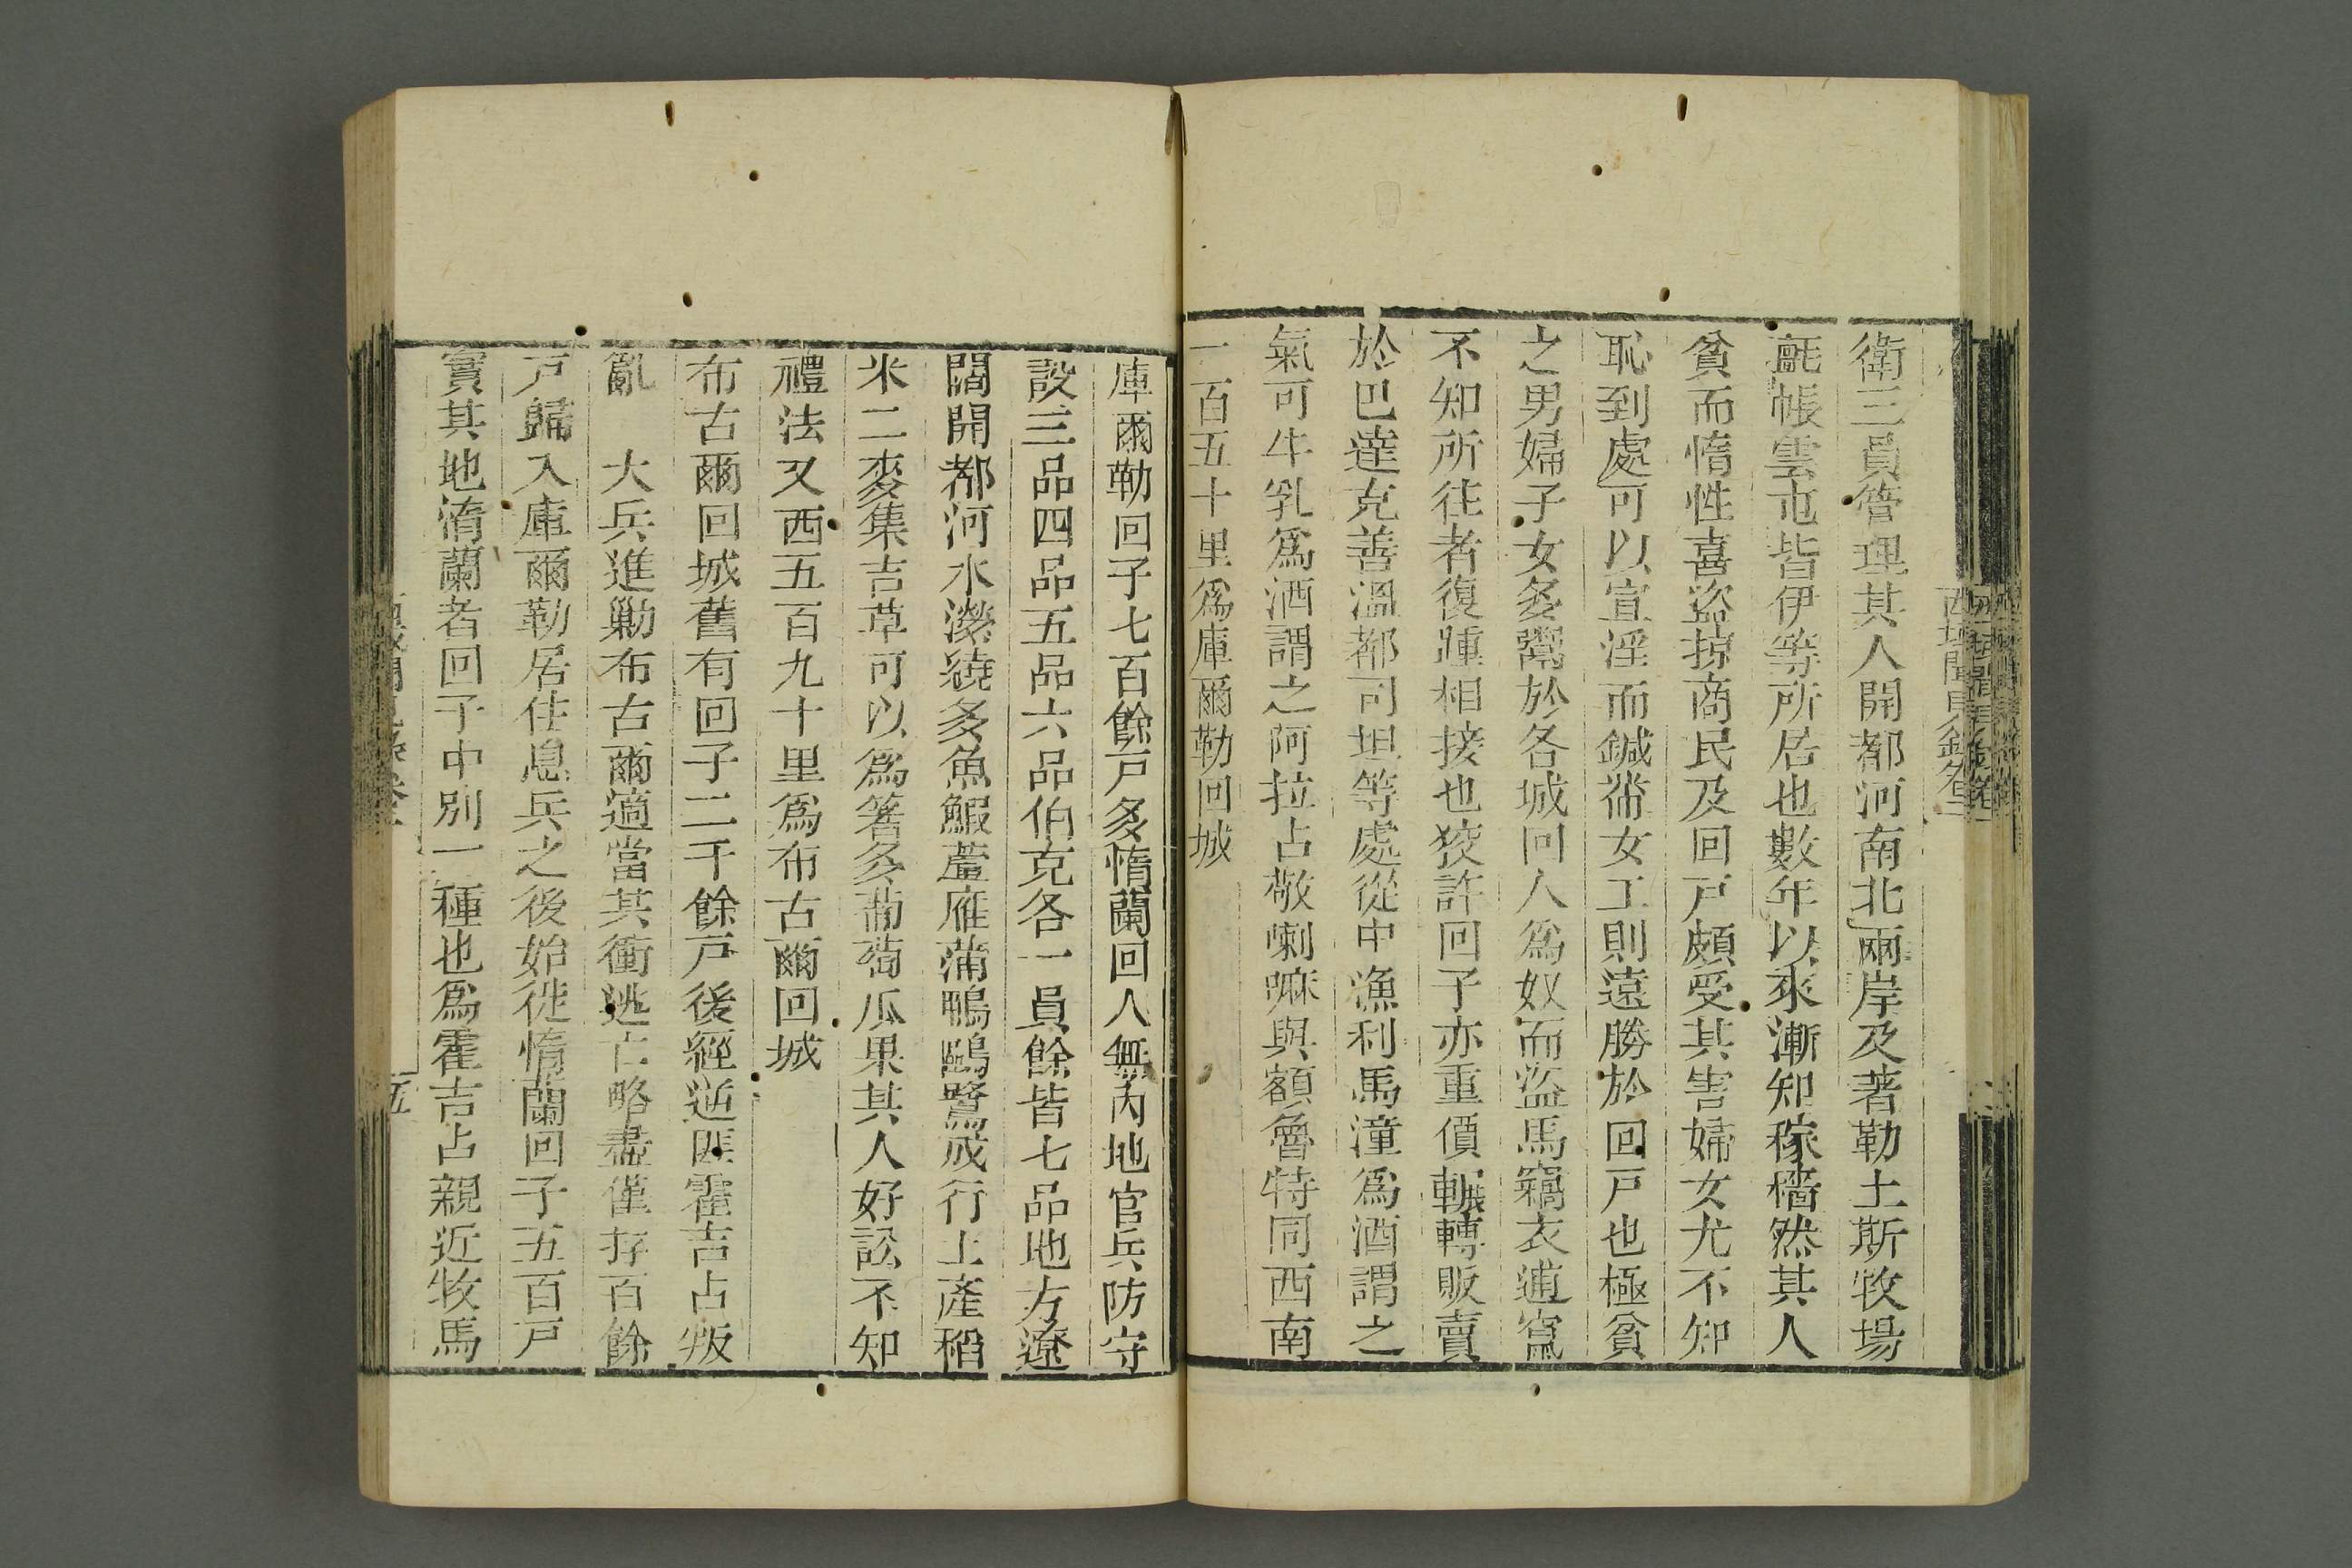 衛三員管理其人開都河南北兩岸及著勒土斯牧場
氈帳雲屯皆伊等所居也數年以來漸知稼穡然其人
貧而惰性喜盜掠商民及回戶頗受其害婦女尤不知
恥到處可以宣淫而鍼黹女工則遠勝於回戶也極貧
之男婦子女多鬻於各城回人爲奴而盜馬竊衣逋竄
不知所往者復踵相接也狡詐回子亦重價輾轉販賣
於巴達克善溫都司坦等處從中漁利馬湩爲酒謂之
氣可牛乳爲酒謂之阿拉占敬喇嘛與額魯特同西南
一百五十里爲庫爾勒回城
庫爾勒回子七百餘戶多惰蘭回人無內地官兵防守
設三品四品五品六品伯克各一員餘皆七品地方遼
闊開都河水濚繞多魚鰕蘆雁蒲鴨鷗鷺成行土產稻
米二麥集吉草可以爲箸多葡萄瓜果其人好訟不知
禮法又西五百九十里爲布古爾回城
布古爾回城舊有回子二千餘戶後經逆匪霍吉占叛
亂　大兵進勦布古爾適當其衝逃亡略盡僅存百餘
戶歸入庫爾勒居住息兵之後始徙惰蘭回子五百戶
實其地惰蘭者回子中別一種也爲霍吉占親近牧馬